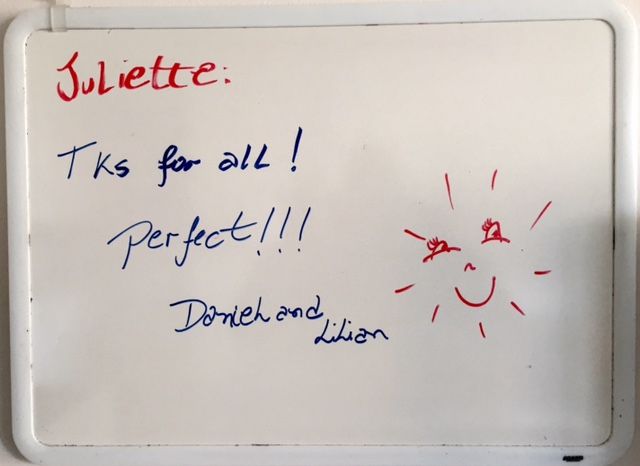 Juliette:
Tks for all!
Perfect!!!
Daniel and
Lilian